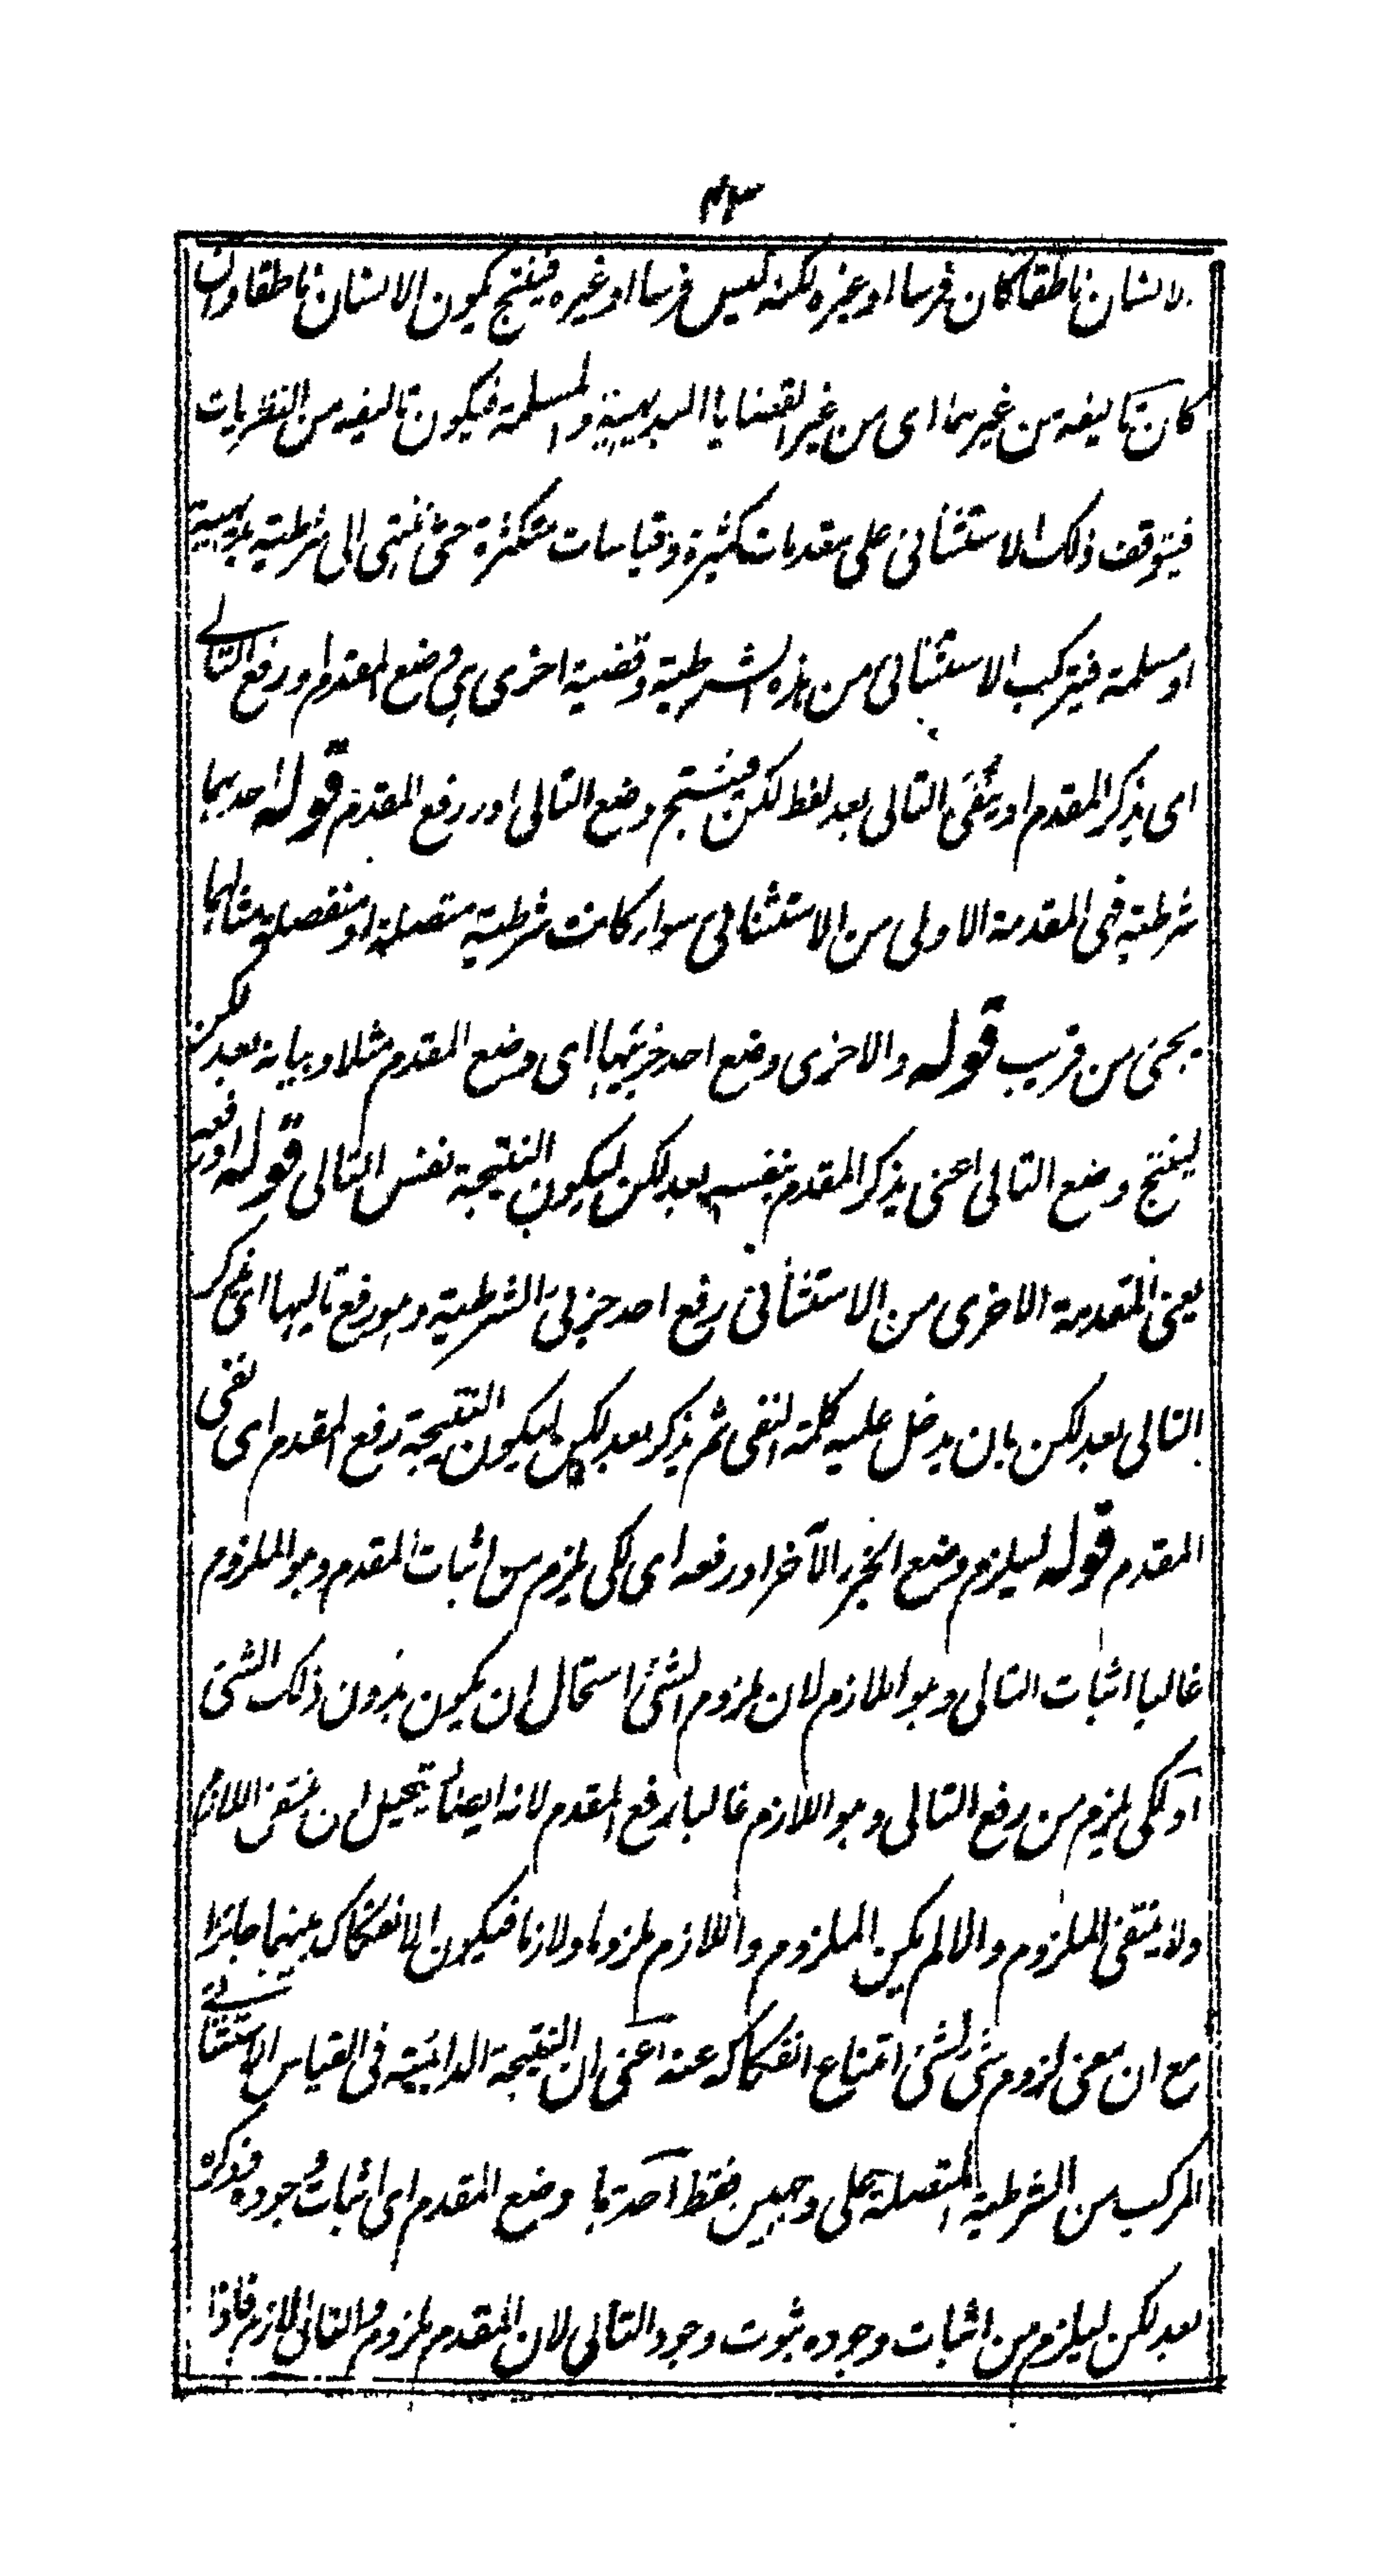 ٤٣
الانسان ناطقا كان فرسا او غيره لكنه ليس فرسا او غيره فينتج يكون الانسان ناطقا وان
كان تاليفه من غيرهما اى من غير القضايا البديهية والمسلمة فيكون تاليفه من النظريات
فيتوقف ذلك الاستثنائى على مقدمات كثيرة وقياسات متكثرة حتى ينتهى الى شرطية بديهية
او مسلمة فيتركب الاستثنائى من هذه الشرطية وقضية اخرى هى وضع المقدم او رفع التالے
اى يذكر المقدم او ينفى التالى بعد لفظ لكن فينتج وضع التالى او رفع المقدم قوله احدهما
شرطية فهى المقدمة الاولى من الاستثنائى سواء كانت شرطية متصلة او منفصلة مثالهما
يجئ من قريب قوله والاخرى وضع احد جزئيها اى وضع المقدم مثلا وبيانه بعد لكن
لينتج وضع التالى اعنى يذكر المقدم بنفسه بعد لكن ليكون النتيجة نفس التالى قوله او رفعه
يعنى المقدمة الاخرى من الاستثنائى رفع احد جزئى الشرطية وهو رفع تاليها اى يذكر
التالى بعد لكن بان يدخل عليه كلمة النفى ثم يذكر بعد لكن ليكون النتيجة رفع المقدم اى نفى
المقدم قوله ليلزم وضع الجزء الآخر او رفعه اى لكى يلزم من اثبات المقدم وهو الملزوم
غالبا اثبات التالى وهو اللازم لان ملزوم الشئ استحال ان يكون بدون ذلك الشئ
او لكى يلزم من رفع التالى وهو اللازم غالبا رفع المقدم لانه ايضا يستحيل ان ينتفى اللازم
ولا ينتفى الملزوم والا لم يكن الملزوم واللازم ملزوما ولازما فيكون الانفكاك بينهما جائزا
مع ان معنى لزوم شئ لشئ امتناع انفكاكه عنه اعنى ان النتيجة الدائمية فى القياس الاستثنائے
المركب من الشرطية المتصلة على وجهين فقط احدهما وضع المقدم اى اثبات وجوده وذكره
بعد لكن ليلزم من اثبات وجوده ثبوت وجود التالى لان المقدم ملزوم والتالى لازم فاذا